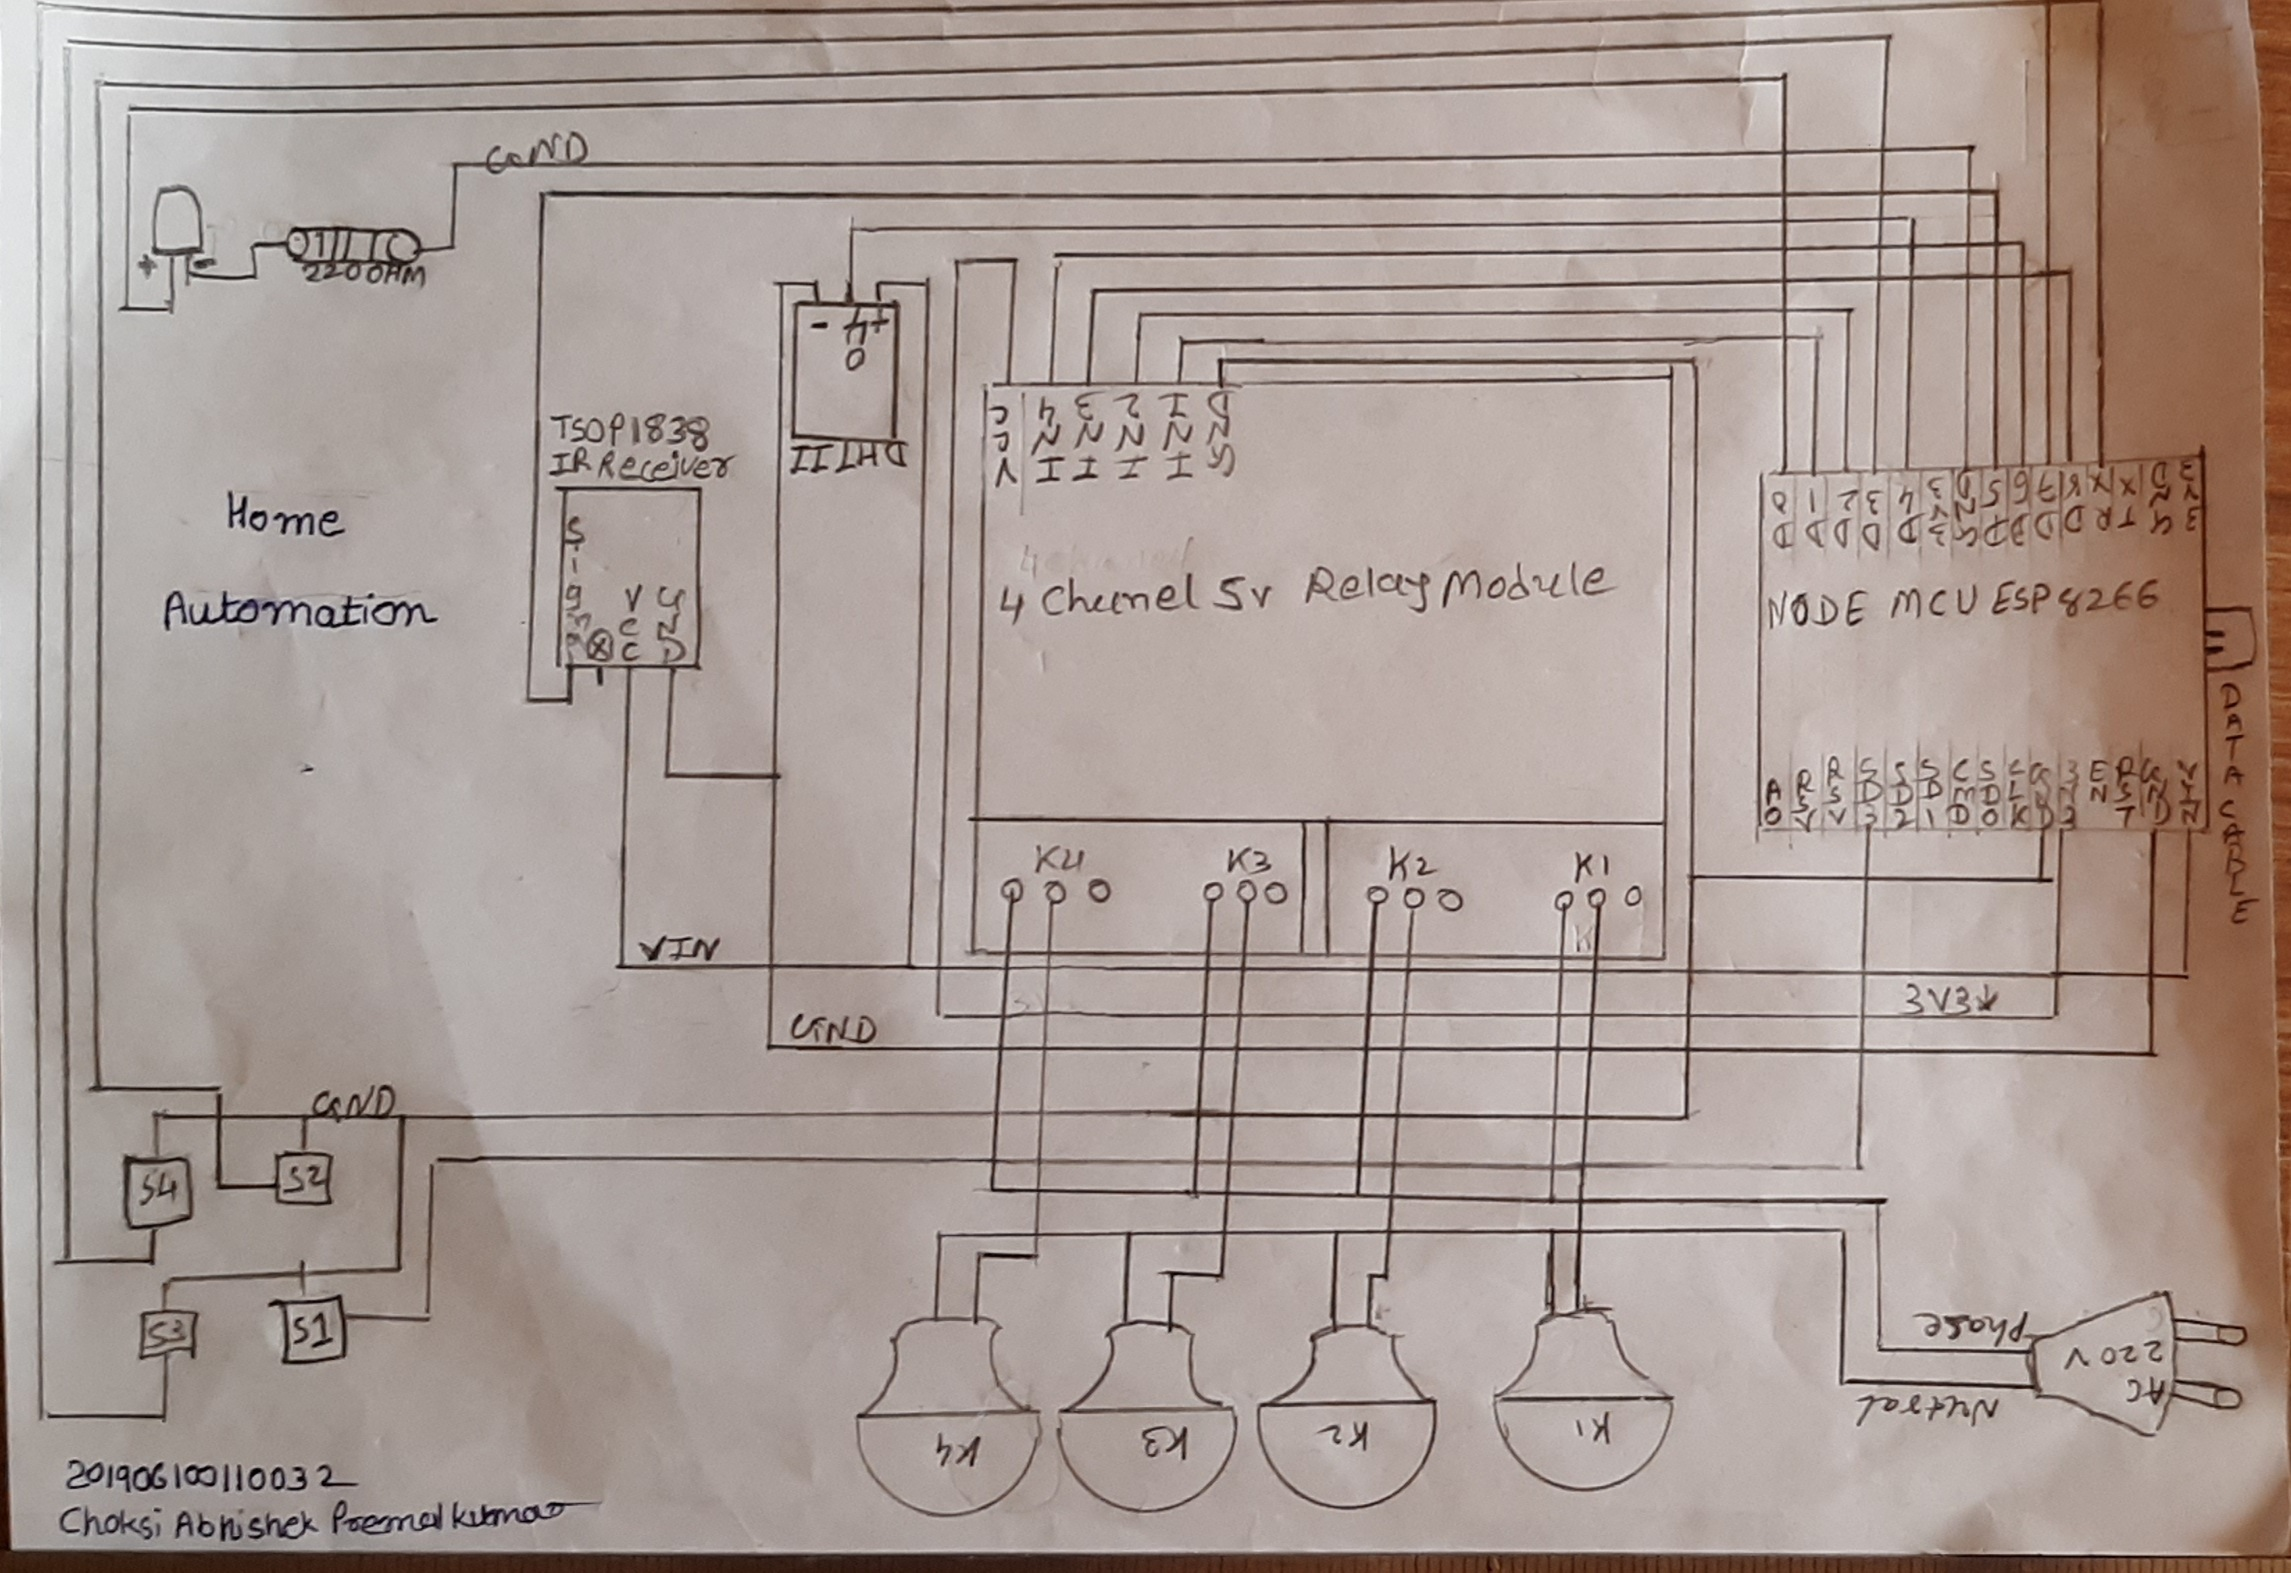 GND
+ -
220OHM
- +
0
DHT11
TSOP1838
IR Receiver
Signal
VCC
GND
Home
Automation
VCC
IN4
IN3
IN2
IN1
GND
4 Chennel 5v Relay Module
K4
K3
K2
K1
D0
D1
D2
D3
D4
3V3
GND
D5
D6
D7
D8
RX
TX
GND
3V3
NODE MCU ESP8266
A0
RSV
RSV
SD3
SD2
SD1
CMD
SD0
CLK
GND
3V3
EN
RST
GND
VIN
DATA CABLE
VIN
3V3
GND
GND
S4
S2
S3
S1
K4
K3
K2
K1
Phase
Nutral
AC
220V
201906100110032
Choksi Abhishek Premalkumar